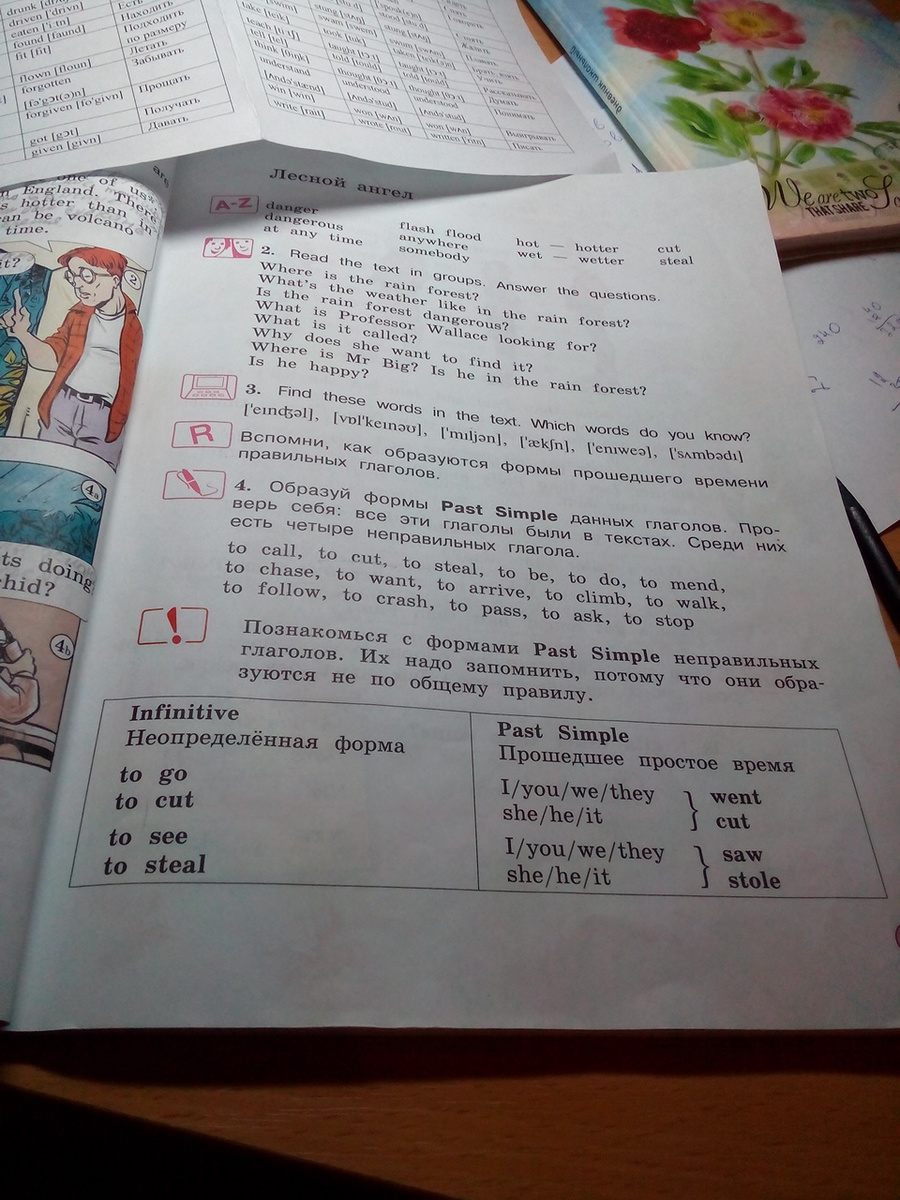 drunk
driven
eaten
found [faund]
fit [fit]
flown [floun]
forgotten
forgiven
got [gɔt]
given [givn]
Есть
Находить
Подходить
по размеру
Летать
Забывать
Прощать
Получать
Давать
understand
win
write [rait]
took
taught
told
thought
understood
won
wrote [rout]
swum
told
thought
understood
won
written
Рассказывать
Думать
Понимать
Выигрывать
Писать
дневник школьный
We are two
THAT SHARE
one of us
England. There
hotter than in
can be volcano
time.
it?
2
4a
ts doing
chid?
4b
Лесной ангел
A-Z
danger
dangerous flash flood hot — hotter cut
at any time anywhere wet — wetter steal
somebody
2. Read the text in groups. Answer the questions.
Where is the rain forest?
What's the weather like in the rain forest?
Is the rain forest dangerous?
What is Professor Wallace looking for?
What is it called?
Why does she want to find it?
Where is Mr Big? Is he in the rain forest?
Is he happy?
3. Find these words in the text. Which words do you know?
['eɪnʤəl], [vɒl'keɪnəʊ], ['mɪljən], ['ækʃn], ['enɪweə], ['sʌmbədɪ]
R
Вспомни, как образуются формы прошедшего времени
правильных глаголов.
4. Образуй формы Past Simple данных глаголов. Про-
верь себя: все эти глаголы были в текстах. Среди них
есть четыре неправильных глагола.
to call, to cut, to steal, to be, to do, to mend,
to chase, to want, to arrive, to climb, to walk,
to follow, to crash, to pass, to ask, to stop
!
Познакомься с формами Past Simple неправильных
глаголов. Их надо запомнить, потому что они обра-
зуются не по общему правилу.
Infinitive
Неопределённая форма
to go
to cut
to see
to steal
Past Simple
Прошедшее простое время
I/you/we/they } went
she/he/it cut
I/you/we/they } saw
she/he/it stole
240